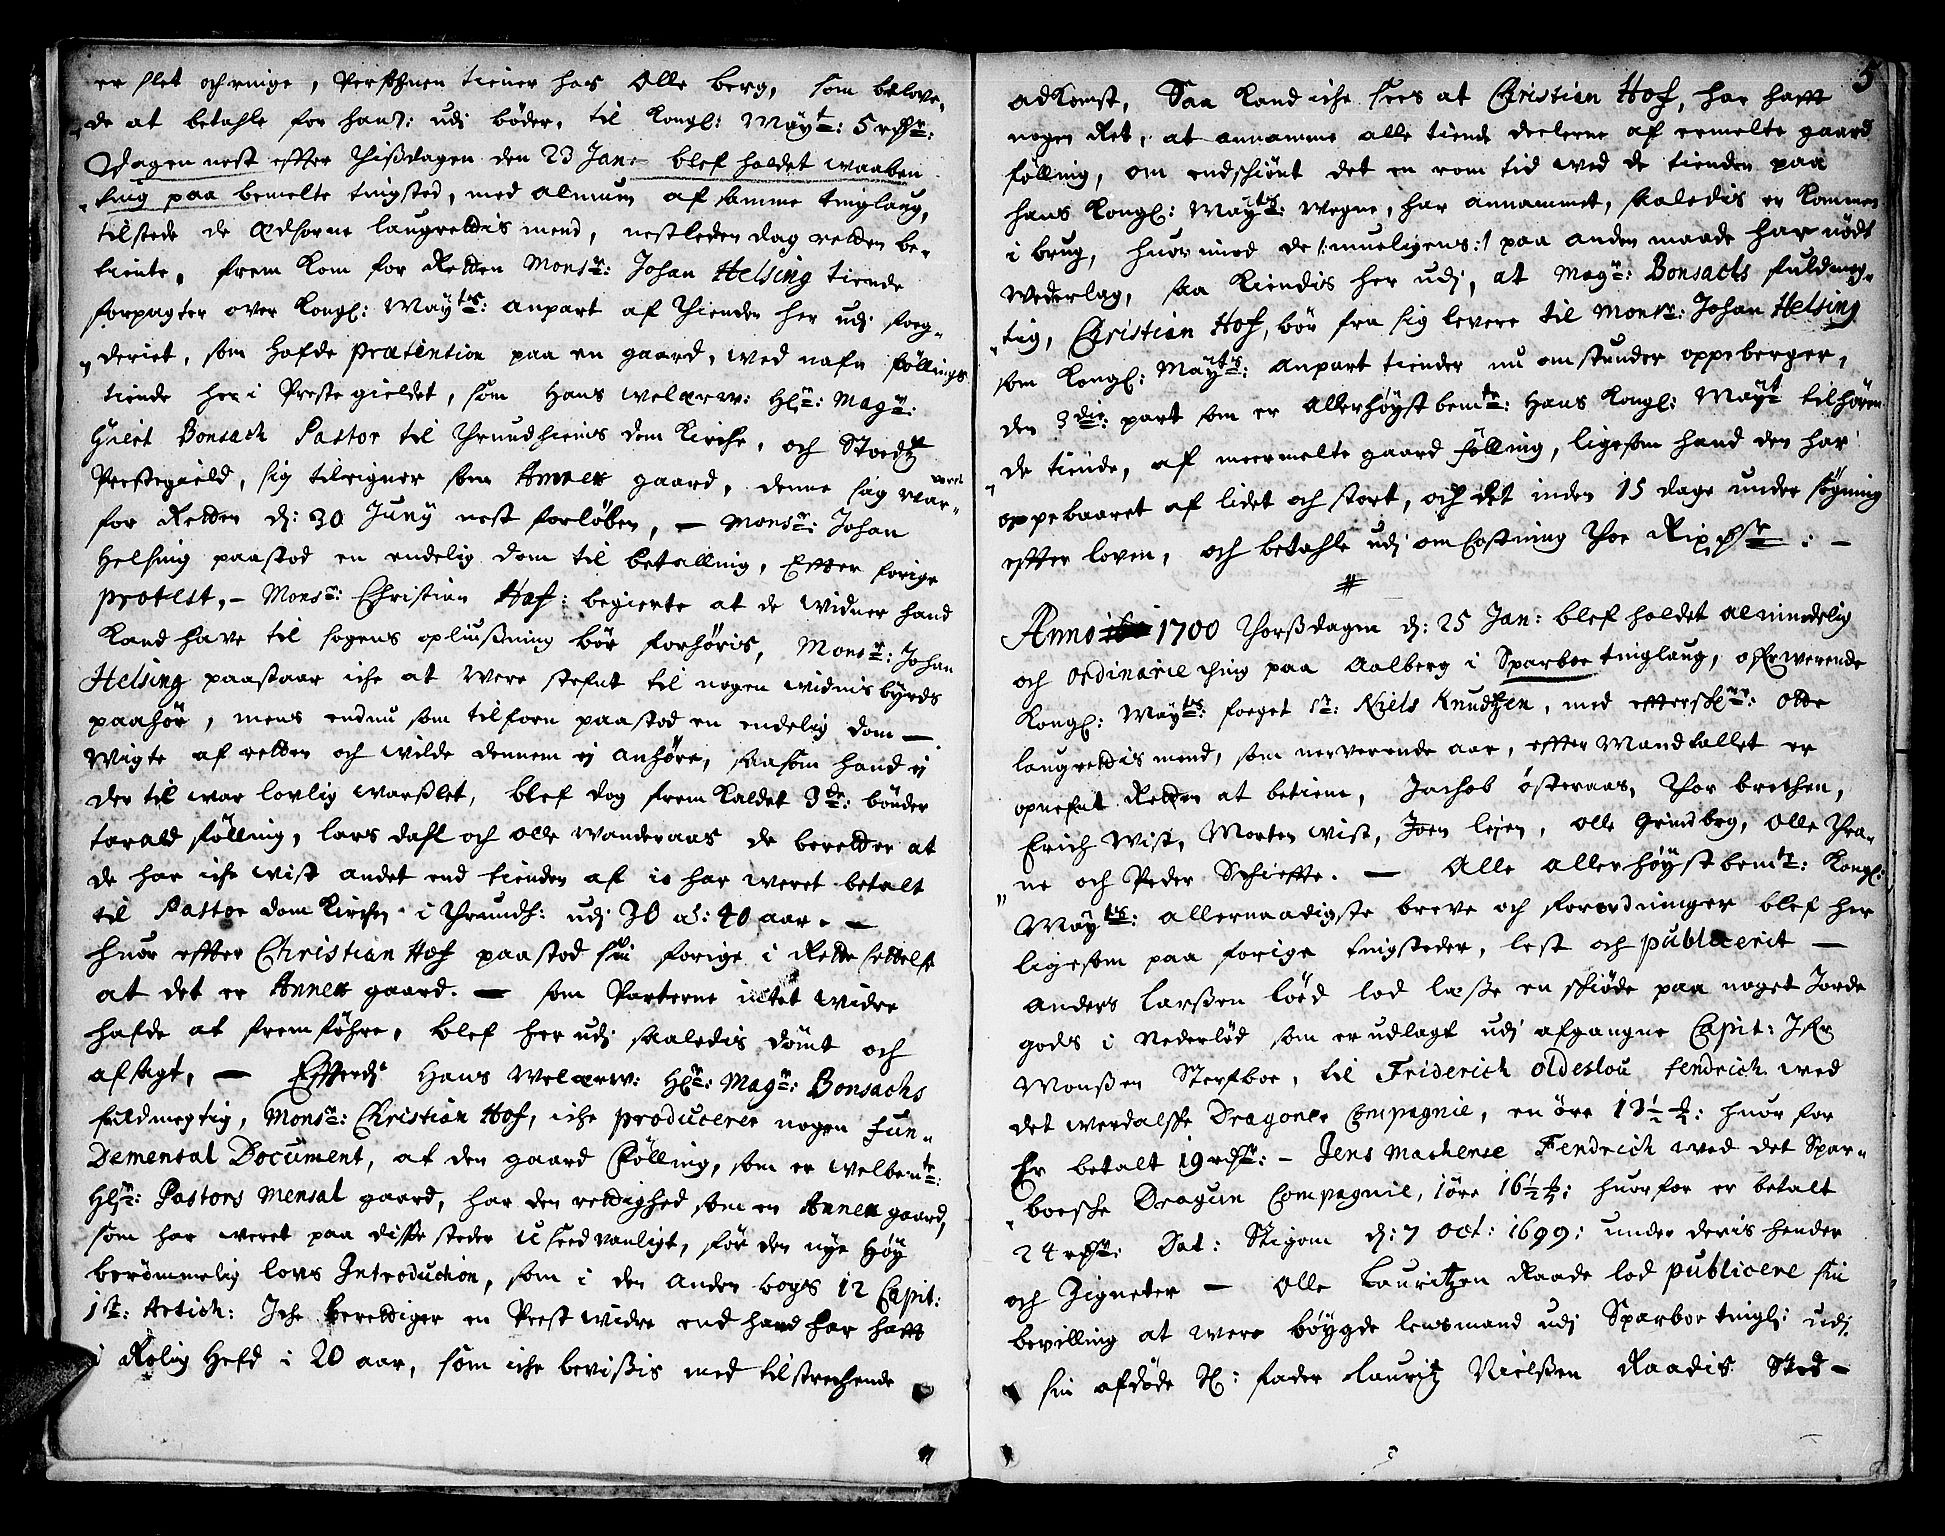 er slet och ringe, Persohnen tiener hos Olle berg, som belove„
de at betahle for hans: udj böder, til Kongl: Mayt: 5 rdr:
Dagen nest effter Thißdagen den 23 Jan: blef holdet waaben„
ting paa bemelte tingsted, med almuen af samme tinglaug,
tilstede de Edsorne laugrettis mend, nestleden dag retten be„
tiente, frem kom for Retten Monsr: Johan Helsing tiende
forpagter over Kongl: Mayts: anpart af Thienden her udj foeg„
deriet, som hafde prætention paa en gaard, wed nafn fölling
tiende her i Prestegieldet, som Hans welærw: Hr: Magr:
Gviert Bonsach Pastor til Thrundhiems dom Kirche, och Stod
Prestegield, sig tileigner som Annex gaard, denne sag war„ weret
for Retten d: 30 Juny nest forlöben, — Monsr: Johan
Helsing paastod en endelig dom til betalling, Effter forige
protest, — Monsr: Christian Hof: begierte at de widner hand
Kand have til sagens opliußning bör forhöris, Monsr: Johan
Helsing paastaar iche at were stefnt til nogen widnisbyrds
paahör, mens endnu som tilforn paastod en endelig dom —
Wigte af retten och wilde dennem ej anhöre, saasom hand ej
der til war lovlig warßlet, blef dog frem kaldet 3de: bönder
tarald fölling, lars dahl och olle wanderaas de berettede at
de har iche wist andet end tienden af io har weret betalt
til Pastor dom Kirchen i Thrundh: udj 30 a: 40 aar. —
huor effter Christian Hof paastod sin forige i Rette settelse
at det er Annex gaard. — som Parterne intet widre
hafde at fremföhre, blef her udj saaledis dömt och
afsagt, — Effterdj Hans Welærw: Hr: Magr: Bonsachs
fuldmegtig, Monsr: Christian Hof, iche producerer nogen fun„
demental Document, at den gaard Fölling, som er welbemte:
Hr: Pastors Mensal gaard, har den rettighed som en Annex gaard,
som har weret paa disse steder useedvanligt, för den nye Höy
berömmelig lovs Introduction, som i den anden bogs 12 Capit:
1st: Artich: Iche berettiger en Prest widre end hand har hafft
i Rolig Hefd i 20 aar, som iche bevißis med tilstrechende
5
adkomst, Saa kand iche sees at Christian Hof, har hafft
nogen Ret, at annamme alle tiende deelerne af ermelte gaard
fölling, om endschiönt det en rom tid wed de tienden paa
hans Kongl: Mayts: wegne, har annammet, saaledis er kommen
i brug, huor imod de /: mueligens :/ paa anden maade har nödt
wederlag, saa kiendis her udj, at Magr: Bonsachs fuldmeg„
tig, Christian Hof, bör fra sig levere til Monsr: Johan Helsing
som Kongl: Mayts: anpart tiender nu omstunder oppeberger,
den 3die: part som er allerhöyst bemte: Hans Kongl: Mayt tilhören„
de tiende, af meermelte gaard fölling, ligesom hand den har
oppebaaret af lidet och stort, och det inden 15 dage under sögning
effter loven, och betahle udj omkostning Thoe Rixdr: —
#
Anno 1700 Thorßdagen d: 25 Jan: blef holdet almindelig
och ordinarie thing paa Aalberg i Sparboe tinglaug, ofverwerende
Kongl: Mayts: foeget Sr: Niels Knudtzen, med effterschr: otte
laugrettis mend, som nerverende aar, effter Mandtallet er
opnefnt Retten at betiene, Jachob österaas, Thor brethen,
Erich wist, Morten wist, Joen lejen, olle Grindbrg, olle Thra„
ne och Peder Schieffte. — Alle allerhöyst bemte: Kongl:
Mayts: allernaadigste breve och forordninger blef her
ligesom paa forige tingsteder, lest och publicerit —
Anders Larßen löed lod læße en schiöde paa noget Jorde
gods i Nederlöd som er udlagt udj afgangne Capit: Ifver
Monßen Sterfboe, til Friderich oldeslou fendrich wed
det werdalsche Dragoner Compagnie, en öre 13½ : huor for
Er betalt 19 rdr: — Jens Machense Fendrich wed det Spar„
boesche Dragun Compagnie, 1 öre 16½ : huor for er betalt
24 rdr: Dat: Stigom d: 7 oct: 1699: under deris hender
och Zigneter — Olle Lauritzen Raade lod publicere sin
bevilling at were böygde lensmand udj Sparboe tingl: udj
sin afdöde Sl: fader Lauritz Nielßen Raadis Sted —